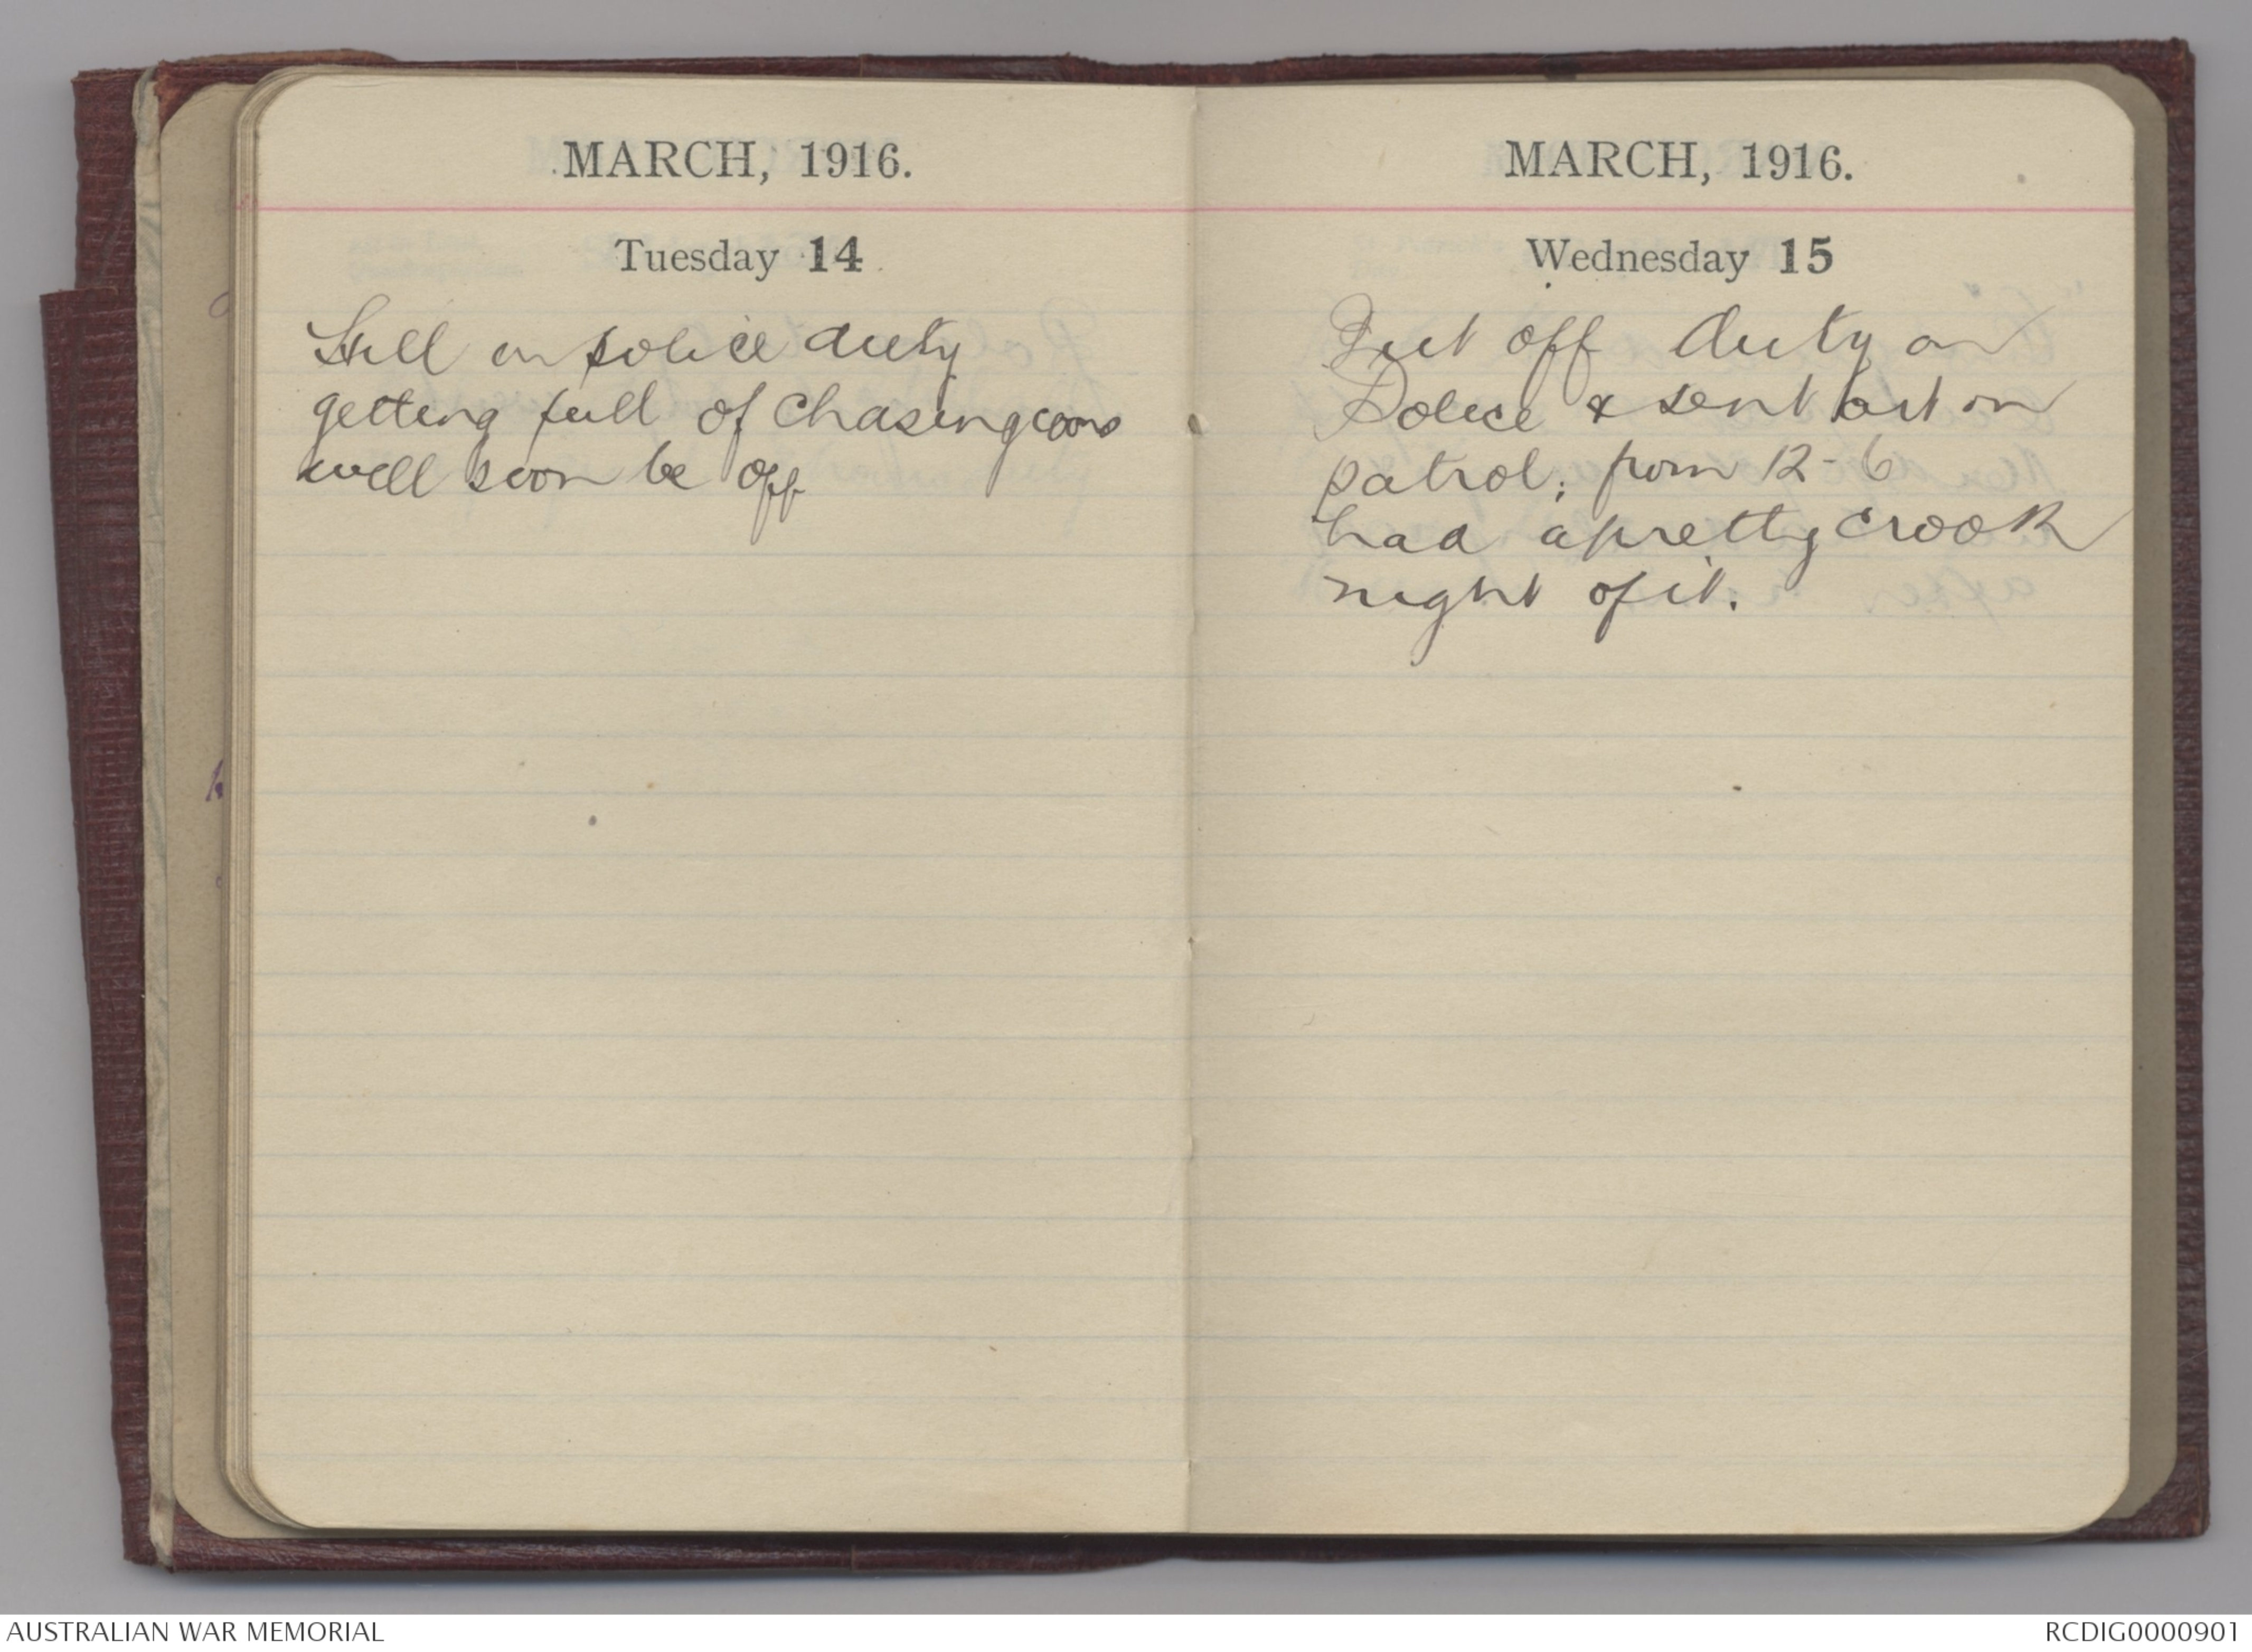 MARCH, 1916.
Tuesday 14
Still on police duty
getting full of chasing coons
will soon be off
MARCH, 1916.
Wednesday 15
Put off duty on
Police & sent out on
patrol; from 12-6
had a pretty crook
night of it.
AUSTRALIAN WAR MEMORIAL
RCDIG0000901